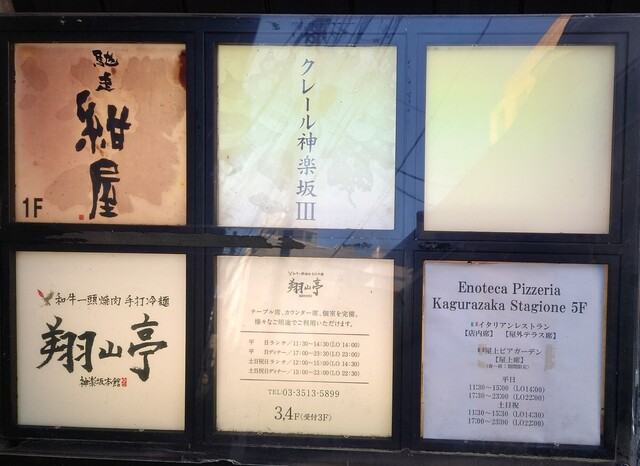 馳走
紺屋
1F
クレール神楽坂III
和牛一頭焼肉 手打冷麺
翔山亭
神楽坂本館
翔山亭
テーブル席、カウンター席、個室を完備。
様々なご用途でご利用いただけます。
平　日ランチ／11:30〜14:30(LO 14:00)
平　日ディナー／17:00〜23:30(LO 23:00)
土日祝日ランチ／12:00〜15:00(LO 14:30)
土日祝日ディナー／15:00〜23:00(LO 22:30)
TEL03-3513-5899
3,4F(受付3F)
Enoteca Pizzeria
Kagurazaka Stagione 5F
イタリアンレストラン
【店内席】 【屋外テラス席】
屋上ビアガーデン
【屋上席】
平日
11:30〜15:00 (LO14:00)
17:30〜23:00 (LO22:00)
土日祝
11:30〜15:30 (LO14:30)
17:00〜23:00 (LO22:00)